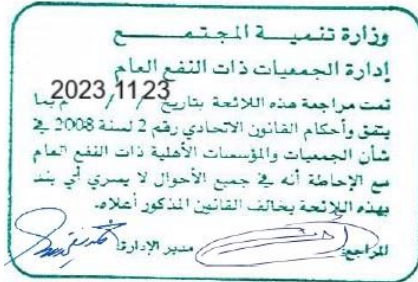 وزارة تنمية المجتمع
إدارة الجمعيات ذات النفع العام
تمت مراجعة هذه اللائحة بتاريخ 2023 / 11 / 23 م بما
يتفق وأحكام القانون الاتحادي رقم 2 لسنة 2008 في
شأن الجمعيات والمؤسسات الأهلية ذات النفع العام
مع الإحاطة أنه في جميع الأحوال لا يسري أي بند
بهذه اللائحة يخالف القانون المذكور أعلاه.
المراجع مدير الإدارة